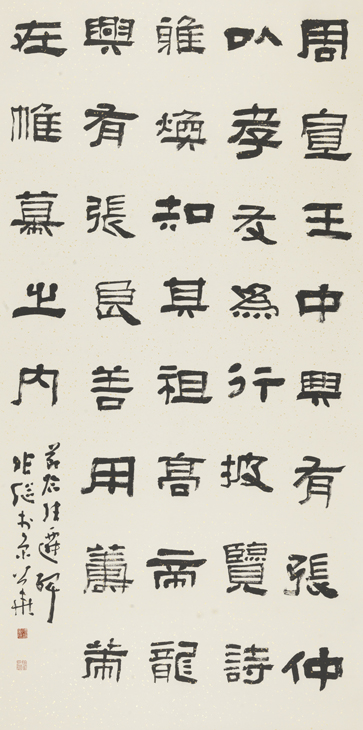 周宣王中興有張仲
以孝友為行披覽詩
雅煥知其祖高帝龍
興有張良善用籌策
在帷幕之內
節臨張遷碑